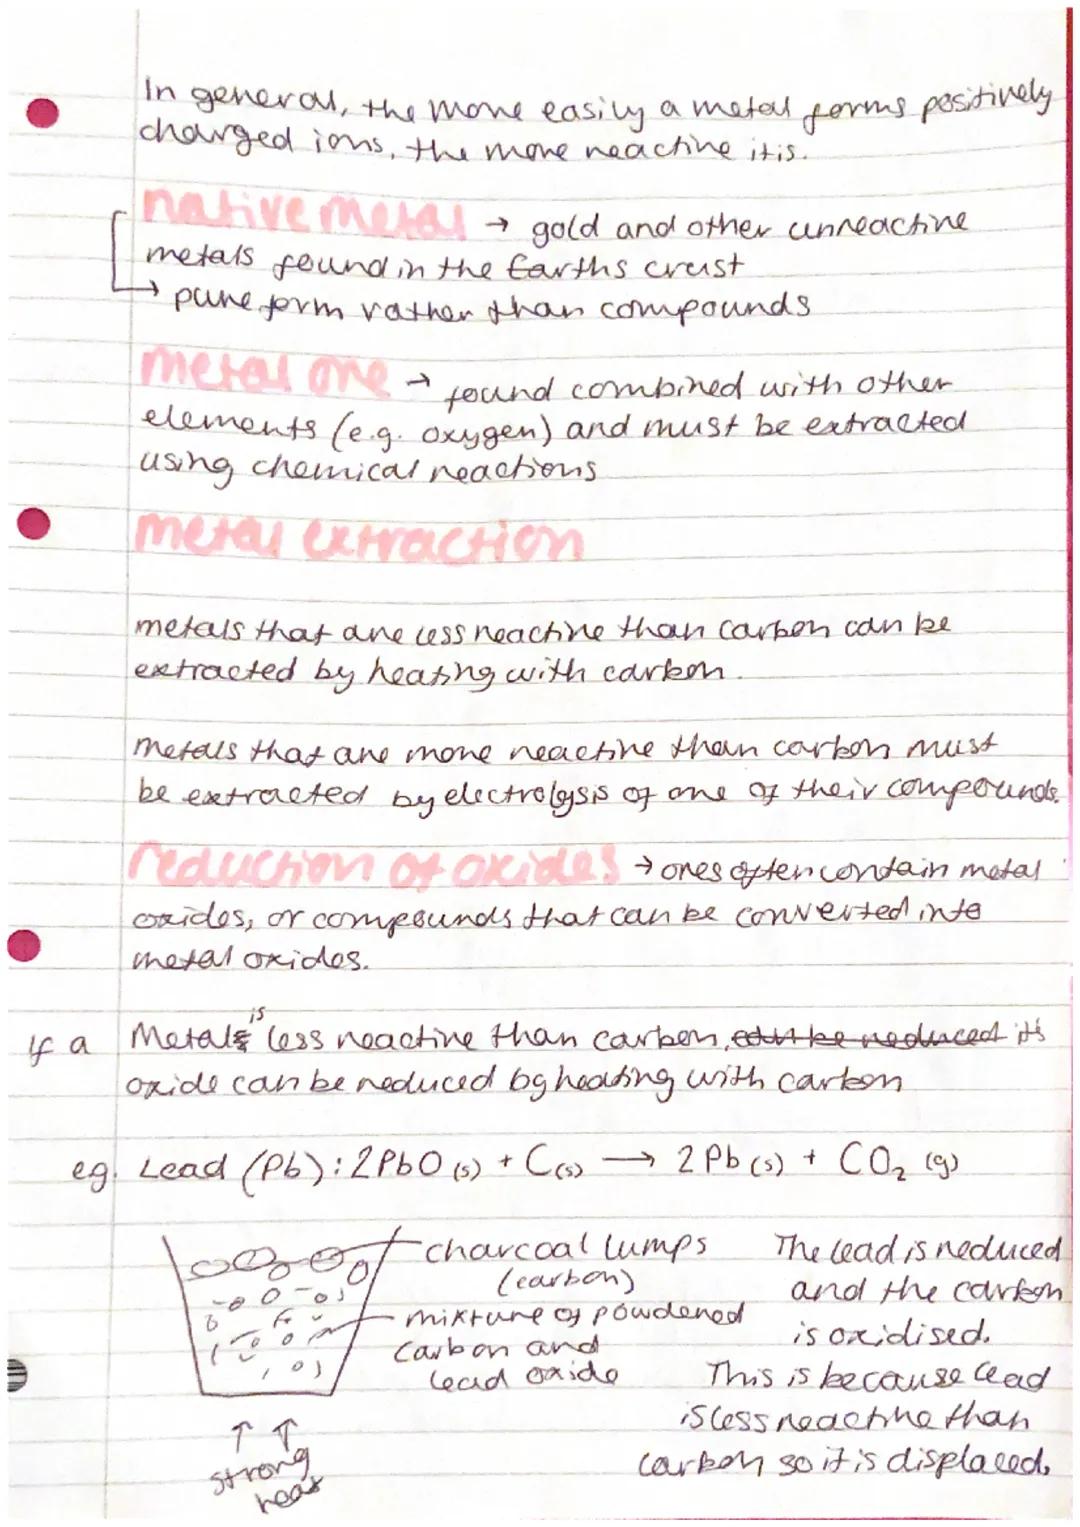 In general, the more easily a metal forms positively
charged ions, the more reactive it is.
native metal → gold and other unreactive
metals found in the Earths crust
→ pure form rather than compounds
metal ore → found combined with other
elements (e.g. oxygen) and must be extracted
using chemical reactions
metal extraction
metals that are less reactive than carbon can be
extracted by heating with carbon.
metals that are more reactive than carbon must
be extracted by electrolysis of one of their compounds.
reduction of oxides → ores often contain metal
oxides, or compounds that can be converted into
metal oxides.
If a Metal is less reactive than carbon, its
oxide can be reduced by heating with carbon
eg. Lead (Pb): 2PbO (s) + C(s) → 2Pb (s) + CO₂ (g)
charcoal lumps
(carbon)
mixture of powdered
carbon and
lead oxide
↑ ↑
strong
heat
The lead is reduced
and the carbon
is oxidised.
This is because lead
is less reactive than
carbon so it is displaced.